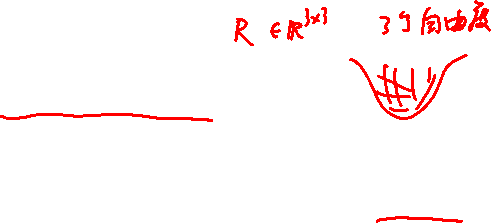 R ∈ ℝ³ˣ³ 3个自由度